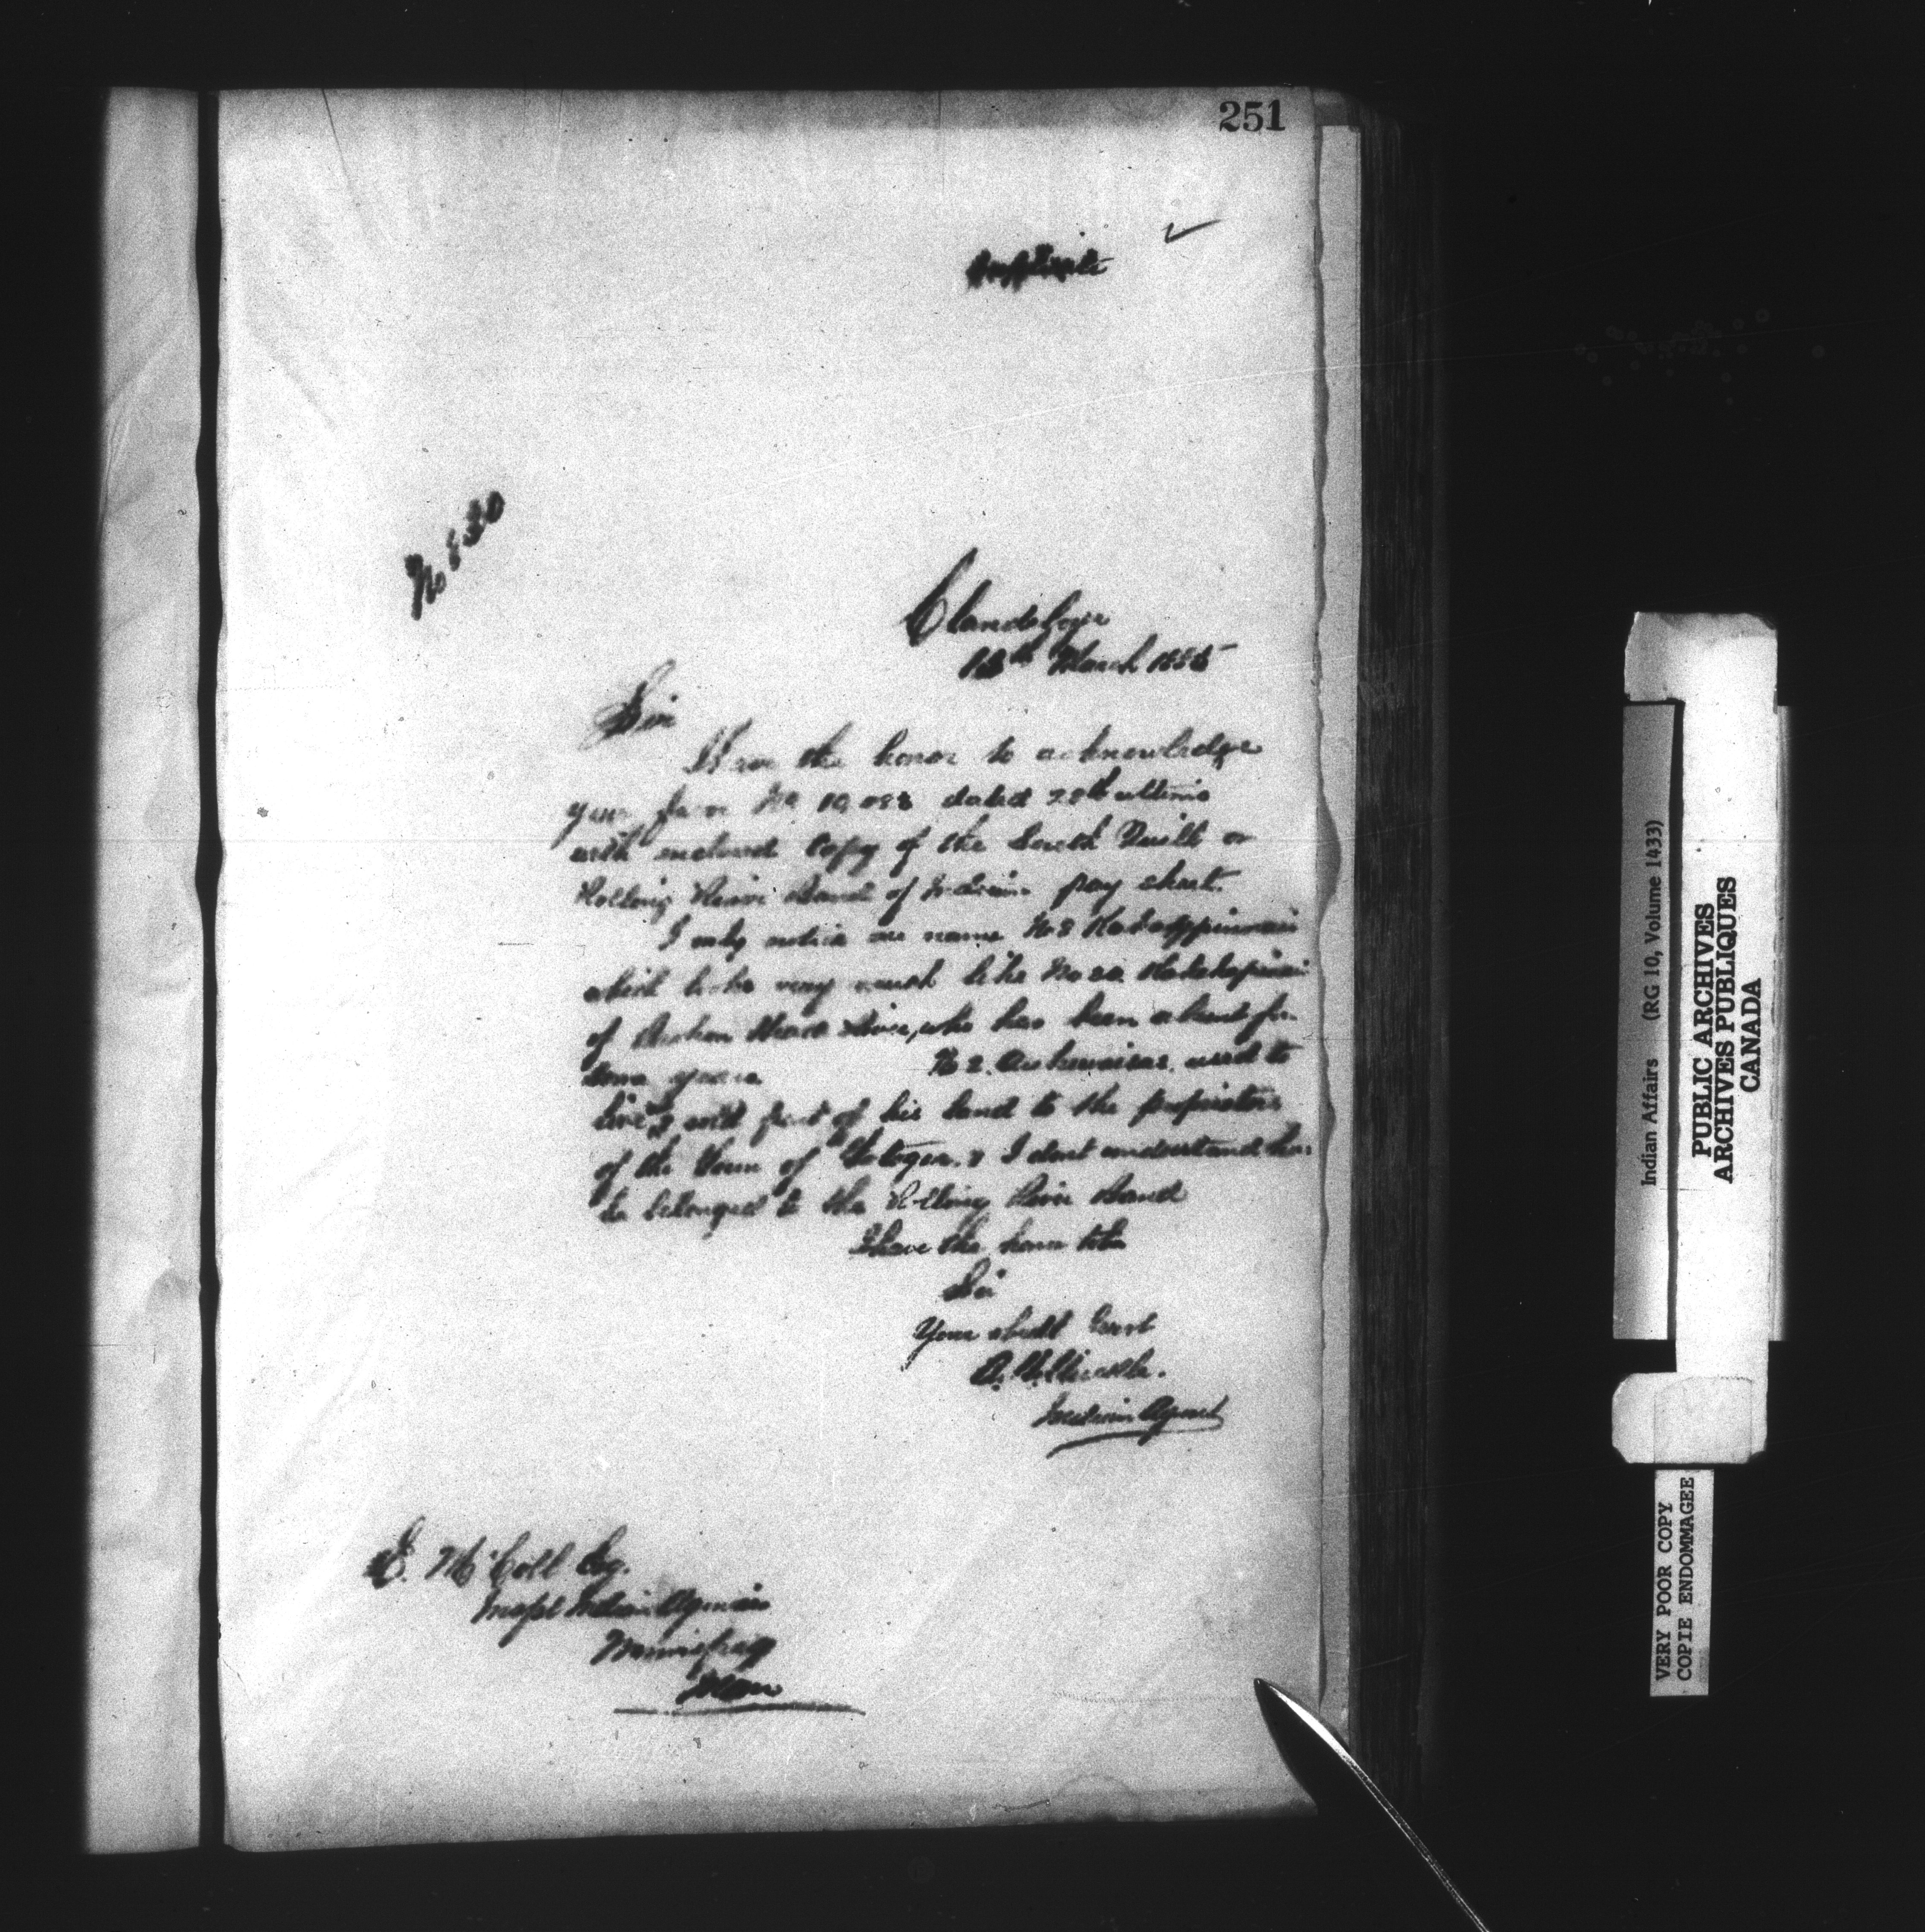 251
Duplicate
No 830
Clandeboye
18th March 1885
Sir
I have the honor to acknowledge
your favor No. 10,088 dated 28th ultimo
with enclosed Copy of the South Quill or
Rolling River Band of Indians pay sheet.
I only notice one name No 8
which looks very much like No 20
of Broken Head River, who has been absent for
some years No 2. used to
live & sold part of his land to the proprietors
of the Town of & I dont understand how
he belonged to the Rolling River Band
I have the honor to be
Sir
Your obedt Servt
A. M. Muckle.
Indian Agent
E. McColl Esq.
Inspt Indian Agencies
Winnipeg
Man
Indian Affairs (RG 10, Volume 1433)
PUBLIC ARCHIVES
ARCHIVES PUBLIQUES
CANADA
VERY POOR COPY
COPIE ENDOMMAGEE